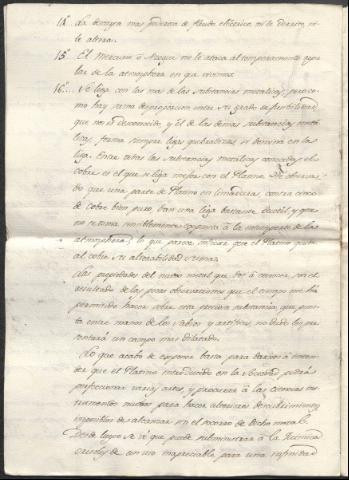 14ª La descarga mas poderosa de fluido electrico ni le derrite, ni le
altera.
15ª El Mercurio ó Azogue no le ataca al temperamento regular
de la atmosphera en que vivimos.
16ª Se liga con las mas de las substancias metalicas, pero como
hay suma desproporcion entre su grado de fusibilidad
que no es desconocido, y él de las demas substancias metalicas,
forma siempre ligas quebradizas si domina en la
liga. Entre todas las substancias metalicas conocidas el
cobre es el que se liga mejor con el Platino. Se observado
que una parte de Platino en limaduras, contra cinco
de Cobre bien puro, dan una liga bastante ductil, y que
no se toma sensiblemente expuesta à la intemperie de la
atmosphera; lo que parece indicar que el Platino quita
al cobre su alterabilidad
Las propiedades del nuevo metal que doy à conocer, son el
resultado de las pocas observaciones que el tiempo me ha
permitido hacer sobre esta preciosa substancia, que puesta
entre manos de los sabios y artistas, no dudo les presentará
un campo mas dilatado.
Lo que acabo de exponer basta para darnos à entender
que el Platino introducido en la Sociedad podrá
perfeccionar varias artes, y procurar à las ciencias instrumentos
nuevos para hacer ulteriores descubrimientos,
imposibles de alcanzar sin el socorro de dicho metal.
Desde luego se vé que puede subministrar à la Quimica
crisoles de un uso inapreciable para una infinidad